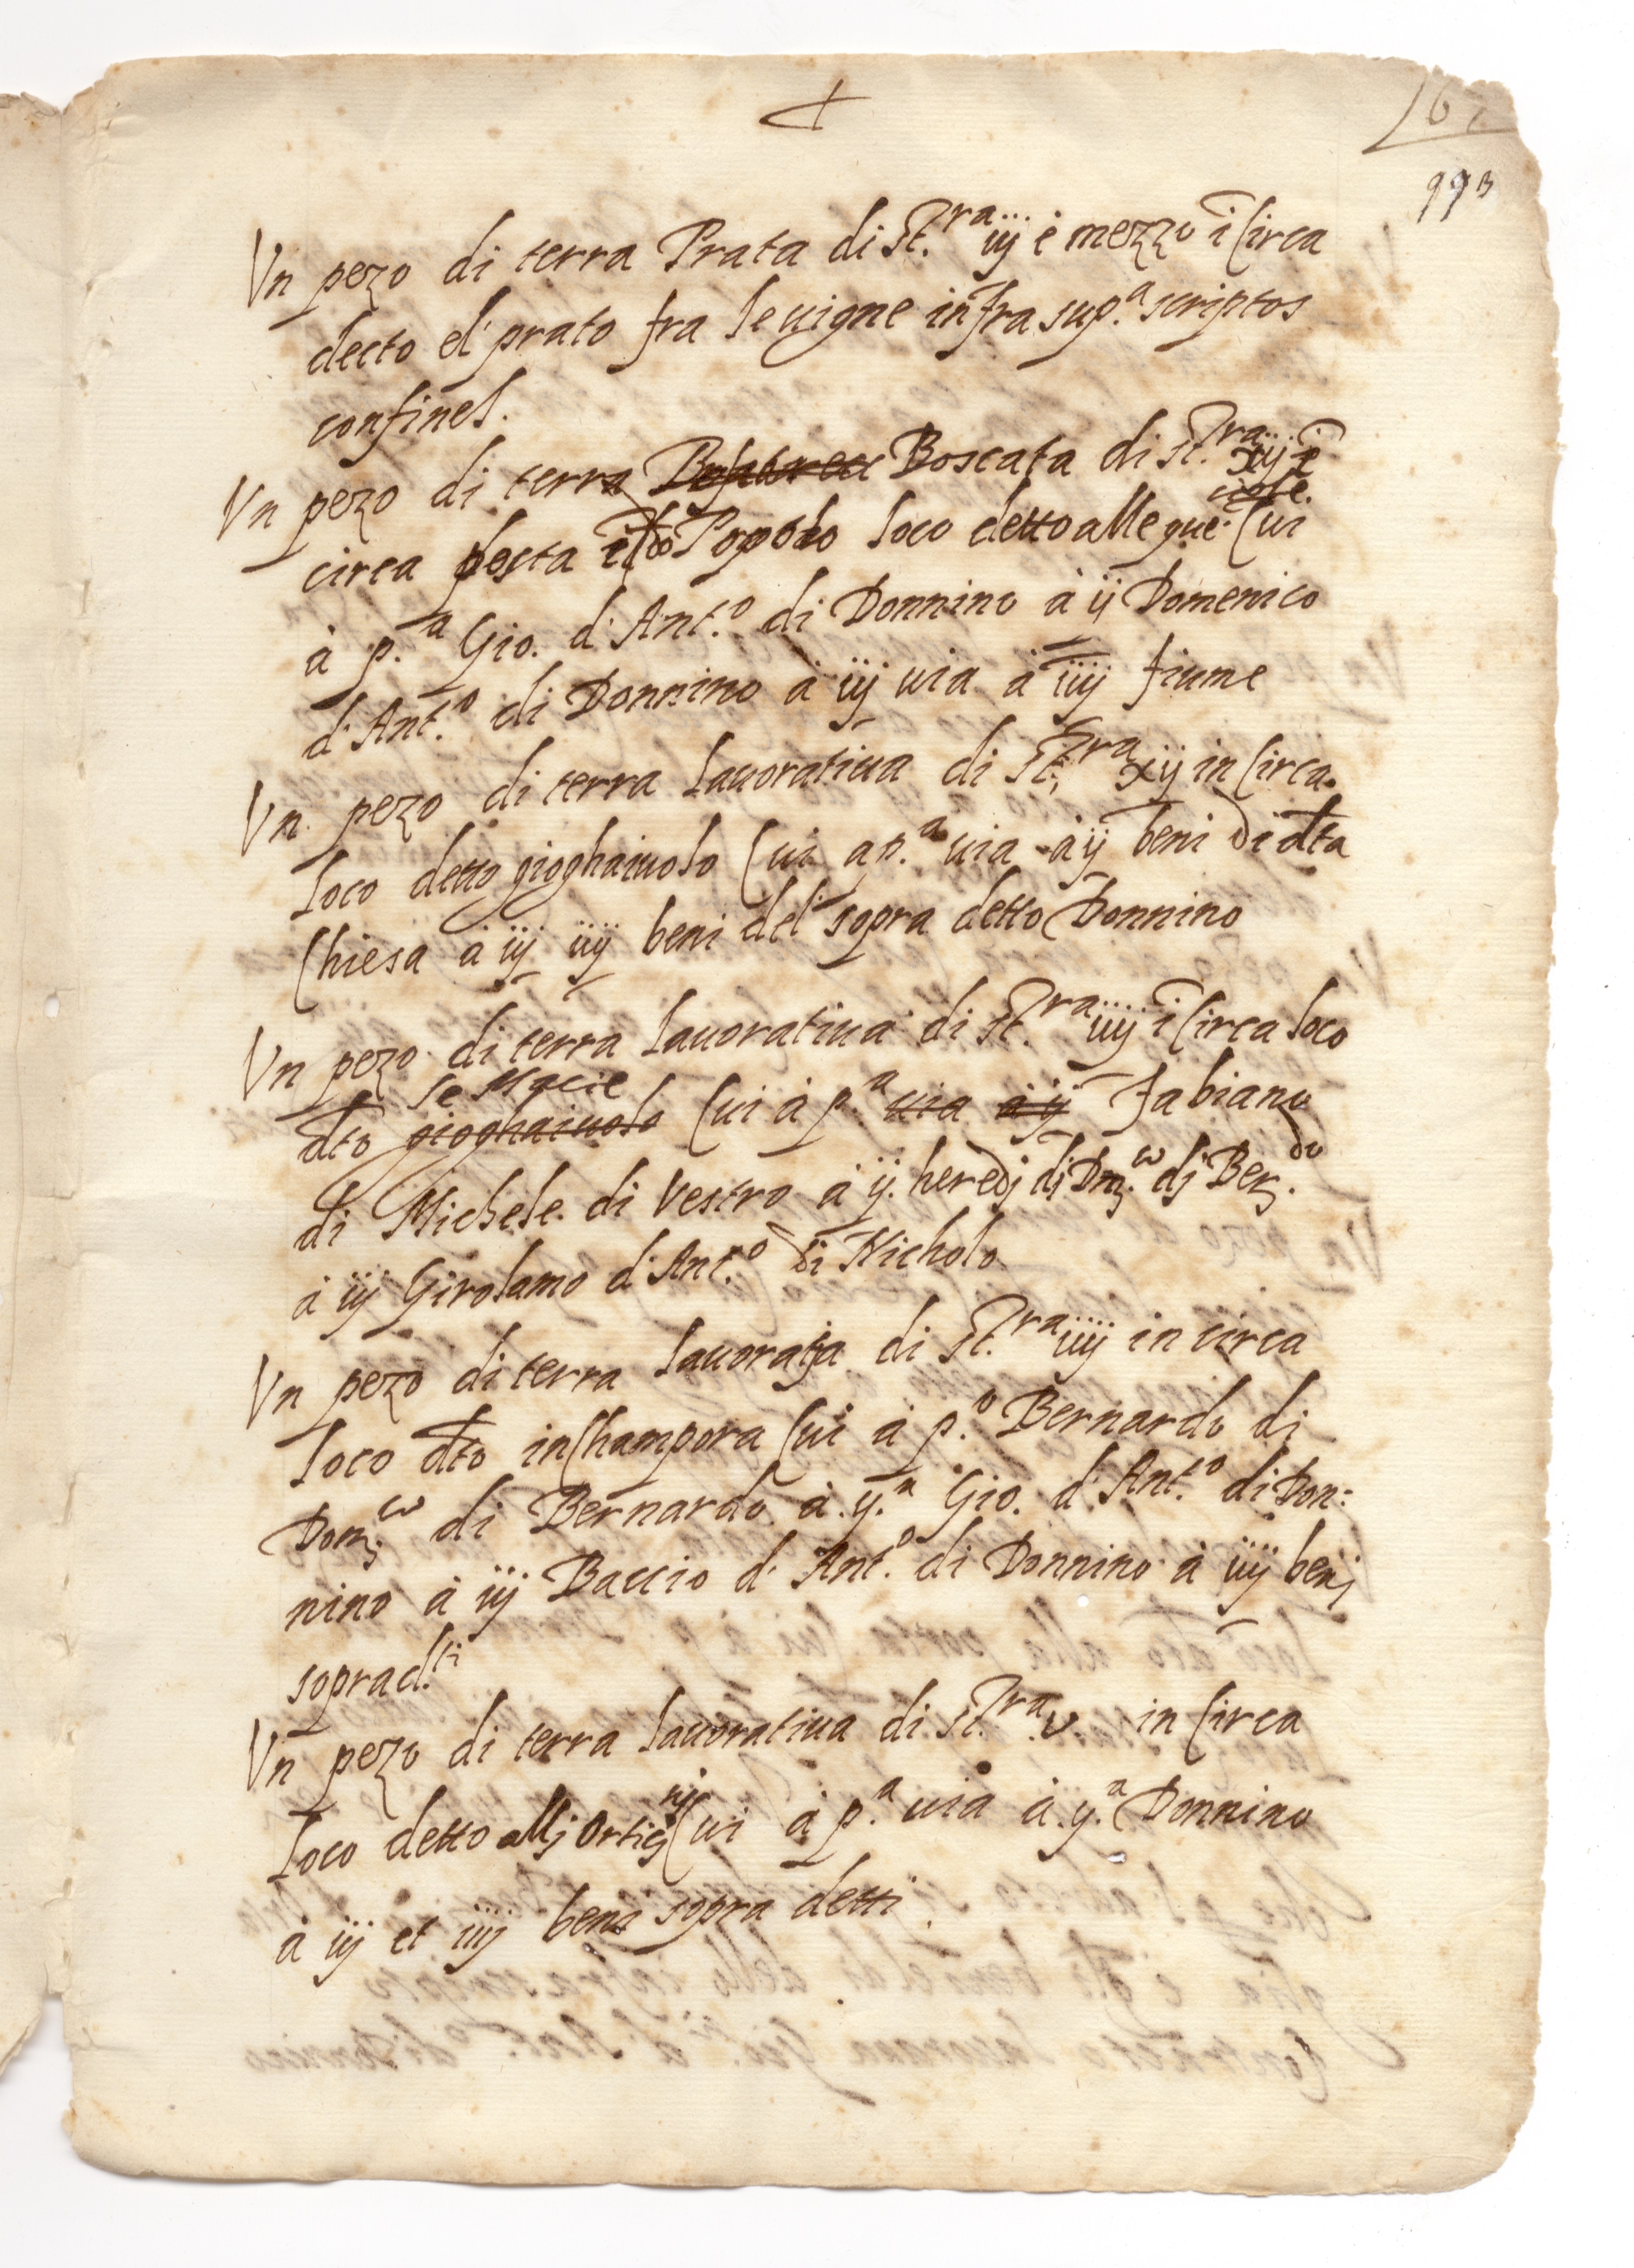 67
993
Vn pezo di terra Prata di st.ra iij e mezzo ī Circa
decto el prato fra le uigne infra sup.a scriptos
confines.
Vn pezo di terra Boscata di st.ra xiij ī
circa posta ī dto Popolo loco detto alle que: Cui
à p.a Gio. d'Ant.o di Donnino à ij Domenico
d'Ant.o di Donnino à iij uia à iiij fiume
Vn pezo di terra lauoratiua di st.ra xij in Circa.
loco detto gioghaiuolo Cui a p.a uia à ij beni di dta
Chiesa à iij iiij beni del sopra detto Donnino
Vn pezo di terra lauoratiua di st.ra iiij ī Circa loco
le Macie
dto gioghaiuolo Cui à p.a uia à ij Fabiano
di Michele di Vestro à ij. heredj dj Dom.co dj Ber.do
à iij Girolamo d'Ant.o di Nicholo
Vn pezo di terra lauorata di st.ra iiij in circa
loco dto inChampora Cui à p.o Bernardo di
Dom.co di Bernardo à .ij.a Gio. d'Ant.o di Don:
nino à iij Baccio d'Ant.o di Donnino à iiij benj
soprad.ti
Vn pezo di terra lauoratiua di st.ra v in Circa
loco detto allj Cui à p.a uia à .ij.a Donnino
à iij et iiij beni sopra detti